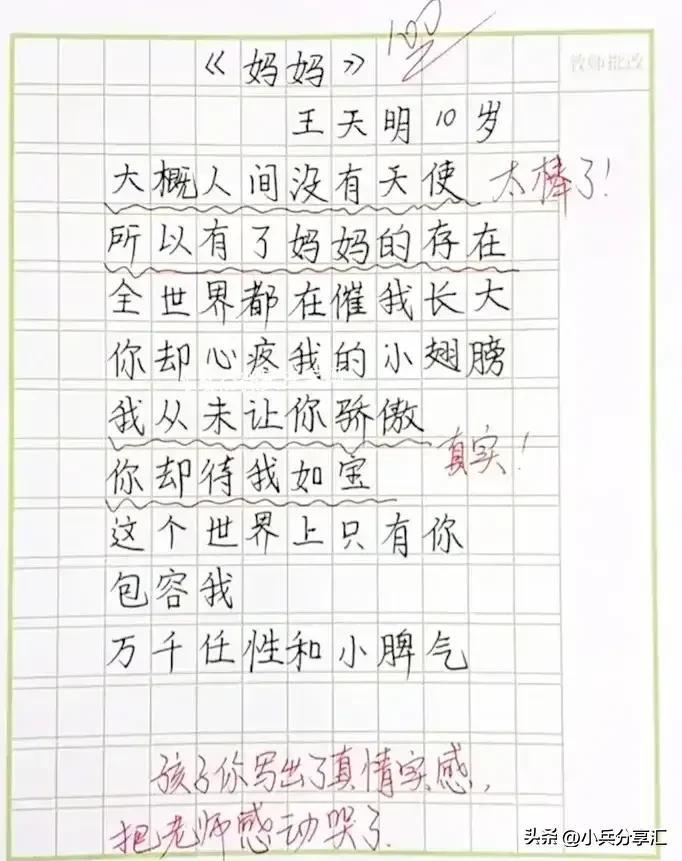 《妈妈》 100
教师批改
王天明10岁
大概人间没有天使 太棒了!
所以有了妈妈的存在
全世界都在催我长大
你却心疼我的小翅膀
我从未让你骄傲
真实!
你却待我如宝
这个世界上只有你
包容我
万千任性和小脾气
孩子你写出了真情实感,
把老师感动哭了.
头条 @小兵分享汇